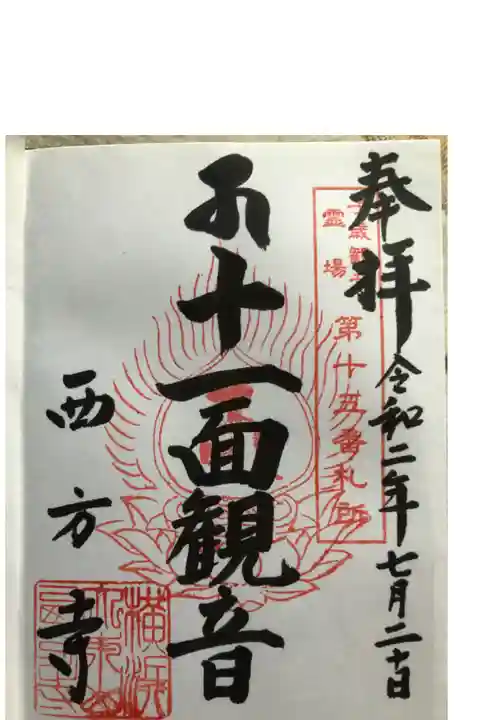 奉拝
令和二年七月二十日
霊場
第十五番札所
十一面観音
西方寺
横浜